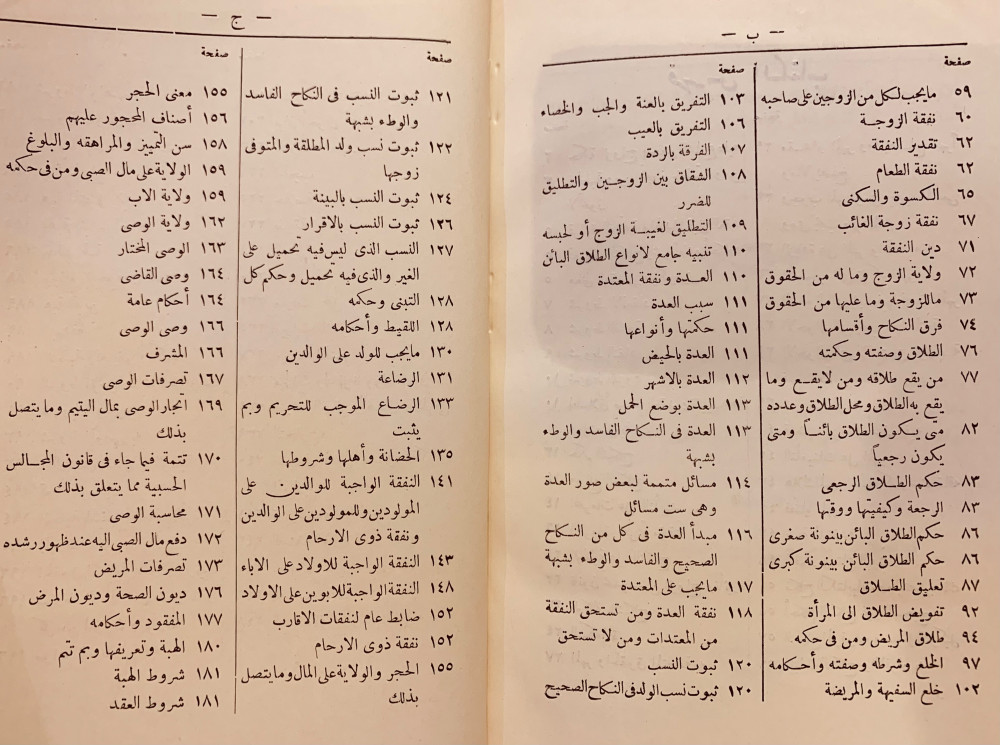 — ب —
صفحة
٥٩ مايجب لكل من الزوجين على صاحبه
٦٠ نفقة الزوجة
٦٢ تقدير النفقة
٦٢ نفقة الطعام
٦٥ الكسوة والسكنى
٦٧ نفقة زوجة الغائب
٧١ دين النفقة
٧٢ ولاية الزوج وما له من الحقوق
٧٣ ماللزوجة وما عليها من الحقوق
٧٤ فرق النكاح وأقسامها
٧٦ الطلاق وصفته وحكمته
٧٧ من يقع طلاقه ومن لا يقع وما
يقع به الطلاق ومحل الطلاق وعدده
٨٢ متى يكون الطلاق بائنا ومتى
يكون رجعياً
٨٣ حكم الطلاق الرجعى
٨٣ الرجعة وكيفيتها ووقتها
٨٦ حكم الطلاق البائن بينونة صغرى
٨٦ حكم الطلاق البائن بينونة كبرى
٨٧ تعليق الطلاق
٩٢ تفويض الطلاق الى المرأة
٩٤ طلاق المريض ومن فى حكمه
٩٧ الخلع وشرطه وصفته وأحكامه
١٠٢ خلع السفيهة والمريضة
صفحة
١٠٣ التفريق بالعنة والجب والخصاء
١٠٦ التفريق بالعيب
١٠٧ الفرقة بالردة
١٠٨ الشقاق بين الزوجين والتطليق
للضرر
١٠٩ التطليق لغيبة الزوج أو لحبسه
١١٠ تنبيه جامع لانواع الطلاق البائن
١١٠ العدة ونفقة المعتدة
١١١ سبب العدة
١١١ حكمتها وأنواعها
١١١ العدة بالحيض
١١٢ العدة بالاشهر
١١٣ العدة بوضع الحمل
١١٣ العدة فى النكاح الفاسد والوطء
بشبهة
١١٤ مسائل متممة لبعض صور العدة
وهى ست مسائل
١١٦ مبدأ العدة فى كل من النكاح
الصحيح والفاسد والوطء بشبهة
١١٧ مايجب على المعتدة
١١٨ نفقة العدة ومن تستحق النفقة
من المعتدات ومن لا تستحق
١٢٠ ثبوت النسب
١٢٠ ثبوت نسب الولد فى النكاح الصحيح
— ج —
صفحة
١٢١ ثبوت النسب فى النكاح الفاسد
والوطء بشبهة
١٢٢ ثبوت نسب ولد المطلقة والمتوفى
زوجها
١٢٤ ثبوت النسب بالبينة
١٢٦ ثبوت النسب بالاقرار
١٢٧ النسب الذى ليس فيه تحميل على
الغير والذى فيه تحميل وحكم كل
١٢٨ التبنى وحكمه
١٢٨ اللقيط وأحكامه
١٣٠ مايجب للولد على الوالدين
١٣١ الرضاعة
١٣٣ الرضاع الموجب للتحريم وبم
يثبت
١٣٥ الحضانة وأهلها وشروطها
١٤١ النفقة الواجبة للوالدين على
المولودين وللمولودين على الوالدين
ونفقة ذوى الارحام
١٤٣ النفقة الواجبة للاولاد على الاباء
١٤٨ النفقة الواجبة للابوين على الاولاد
١٥٢ ضابط عام لنفقات الاقارب
١٥٢ نفقة ذوى الارحام
١٥٥ الحجر والولاية على المال ومايتصل
بذلك
صفحة
١٥٥ معنى الحجر
١٥٦ أصناف المحجور عليهم
١٥٨ سن التمييز والمراهقه والبلوغ
١٥٩ الولاية على مال الصبى ومن فى حكمه
١٥٩ ولاية الاب
١٦٢ ولاية الوصى
١٦٣ الوصى المختار
١٦٤ وصى القاضى
١٦٤ أحكام عامة
١٦٦ وصى الوصى
١٦٦ المشرف
١٦٧ تصرفات الوصى
١٦٩ اتجار الوصى بمال اليتيم ومايتصل
بذلك
١٧٠ تتمة فيما جاء فى قانون المجالس
الحسبية مما يتعلق بذلك
١٧١ محاسبة الوصى
١٧٢ دفع مال الصبى اليه عند ظهور رشده
١٧٣ تصرفات المريض
١٧٦ ديون الصحة وديون المرض
١٧٧ المفقود وأحكامه
١٨٠ الهبة وتعريفها وبم تتم
١٨١ شروط الهبة
١٨١ شروط العقد